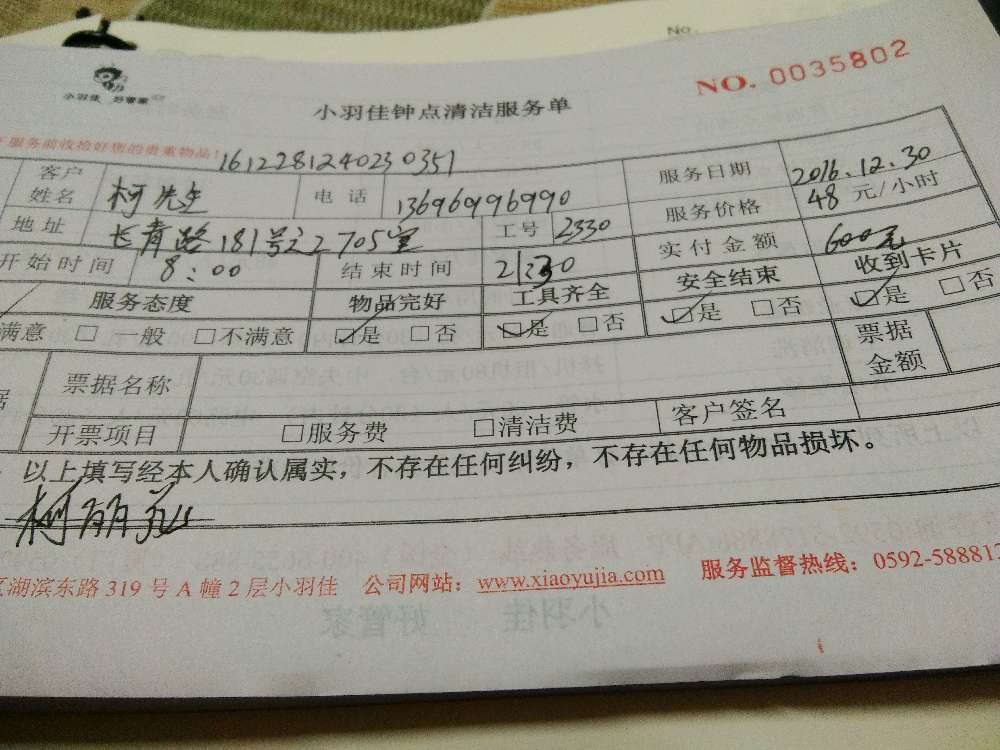 No.
小羽佳 好管家
NO. 0035802
小羽佳钟点清洁服务单
服务前收拾好您的贵重物品！ 161228124023 0351
客户姓名 柯先生 电话 13696996990 服务日期 2016.12.30
地址 长青路181号之2 705室 工号 2330 服务价格 48 元/小时
开始时间 8:00 结束时间 21:30 实付金额 600元
服务态度 物品完好 工具齐全 安全结束 收到卡片
满意 □ 一般 □不满意 ☑是 □否 ☑是 □否 ☑是 □否 ☑是 □否
据 票据名称 票据金额
开票项目 □服务费 □清洁费 客户签名
以上填写经本人确认属实，不存在任何纠纷，不存在任何物品损坏。
湖滨东路 319 号 A 幢 2 层小羽佳 公司网站：www.xiaoyujia.com 服务监督热线：0592-588812